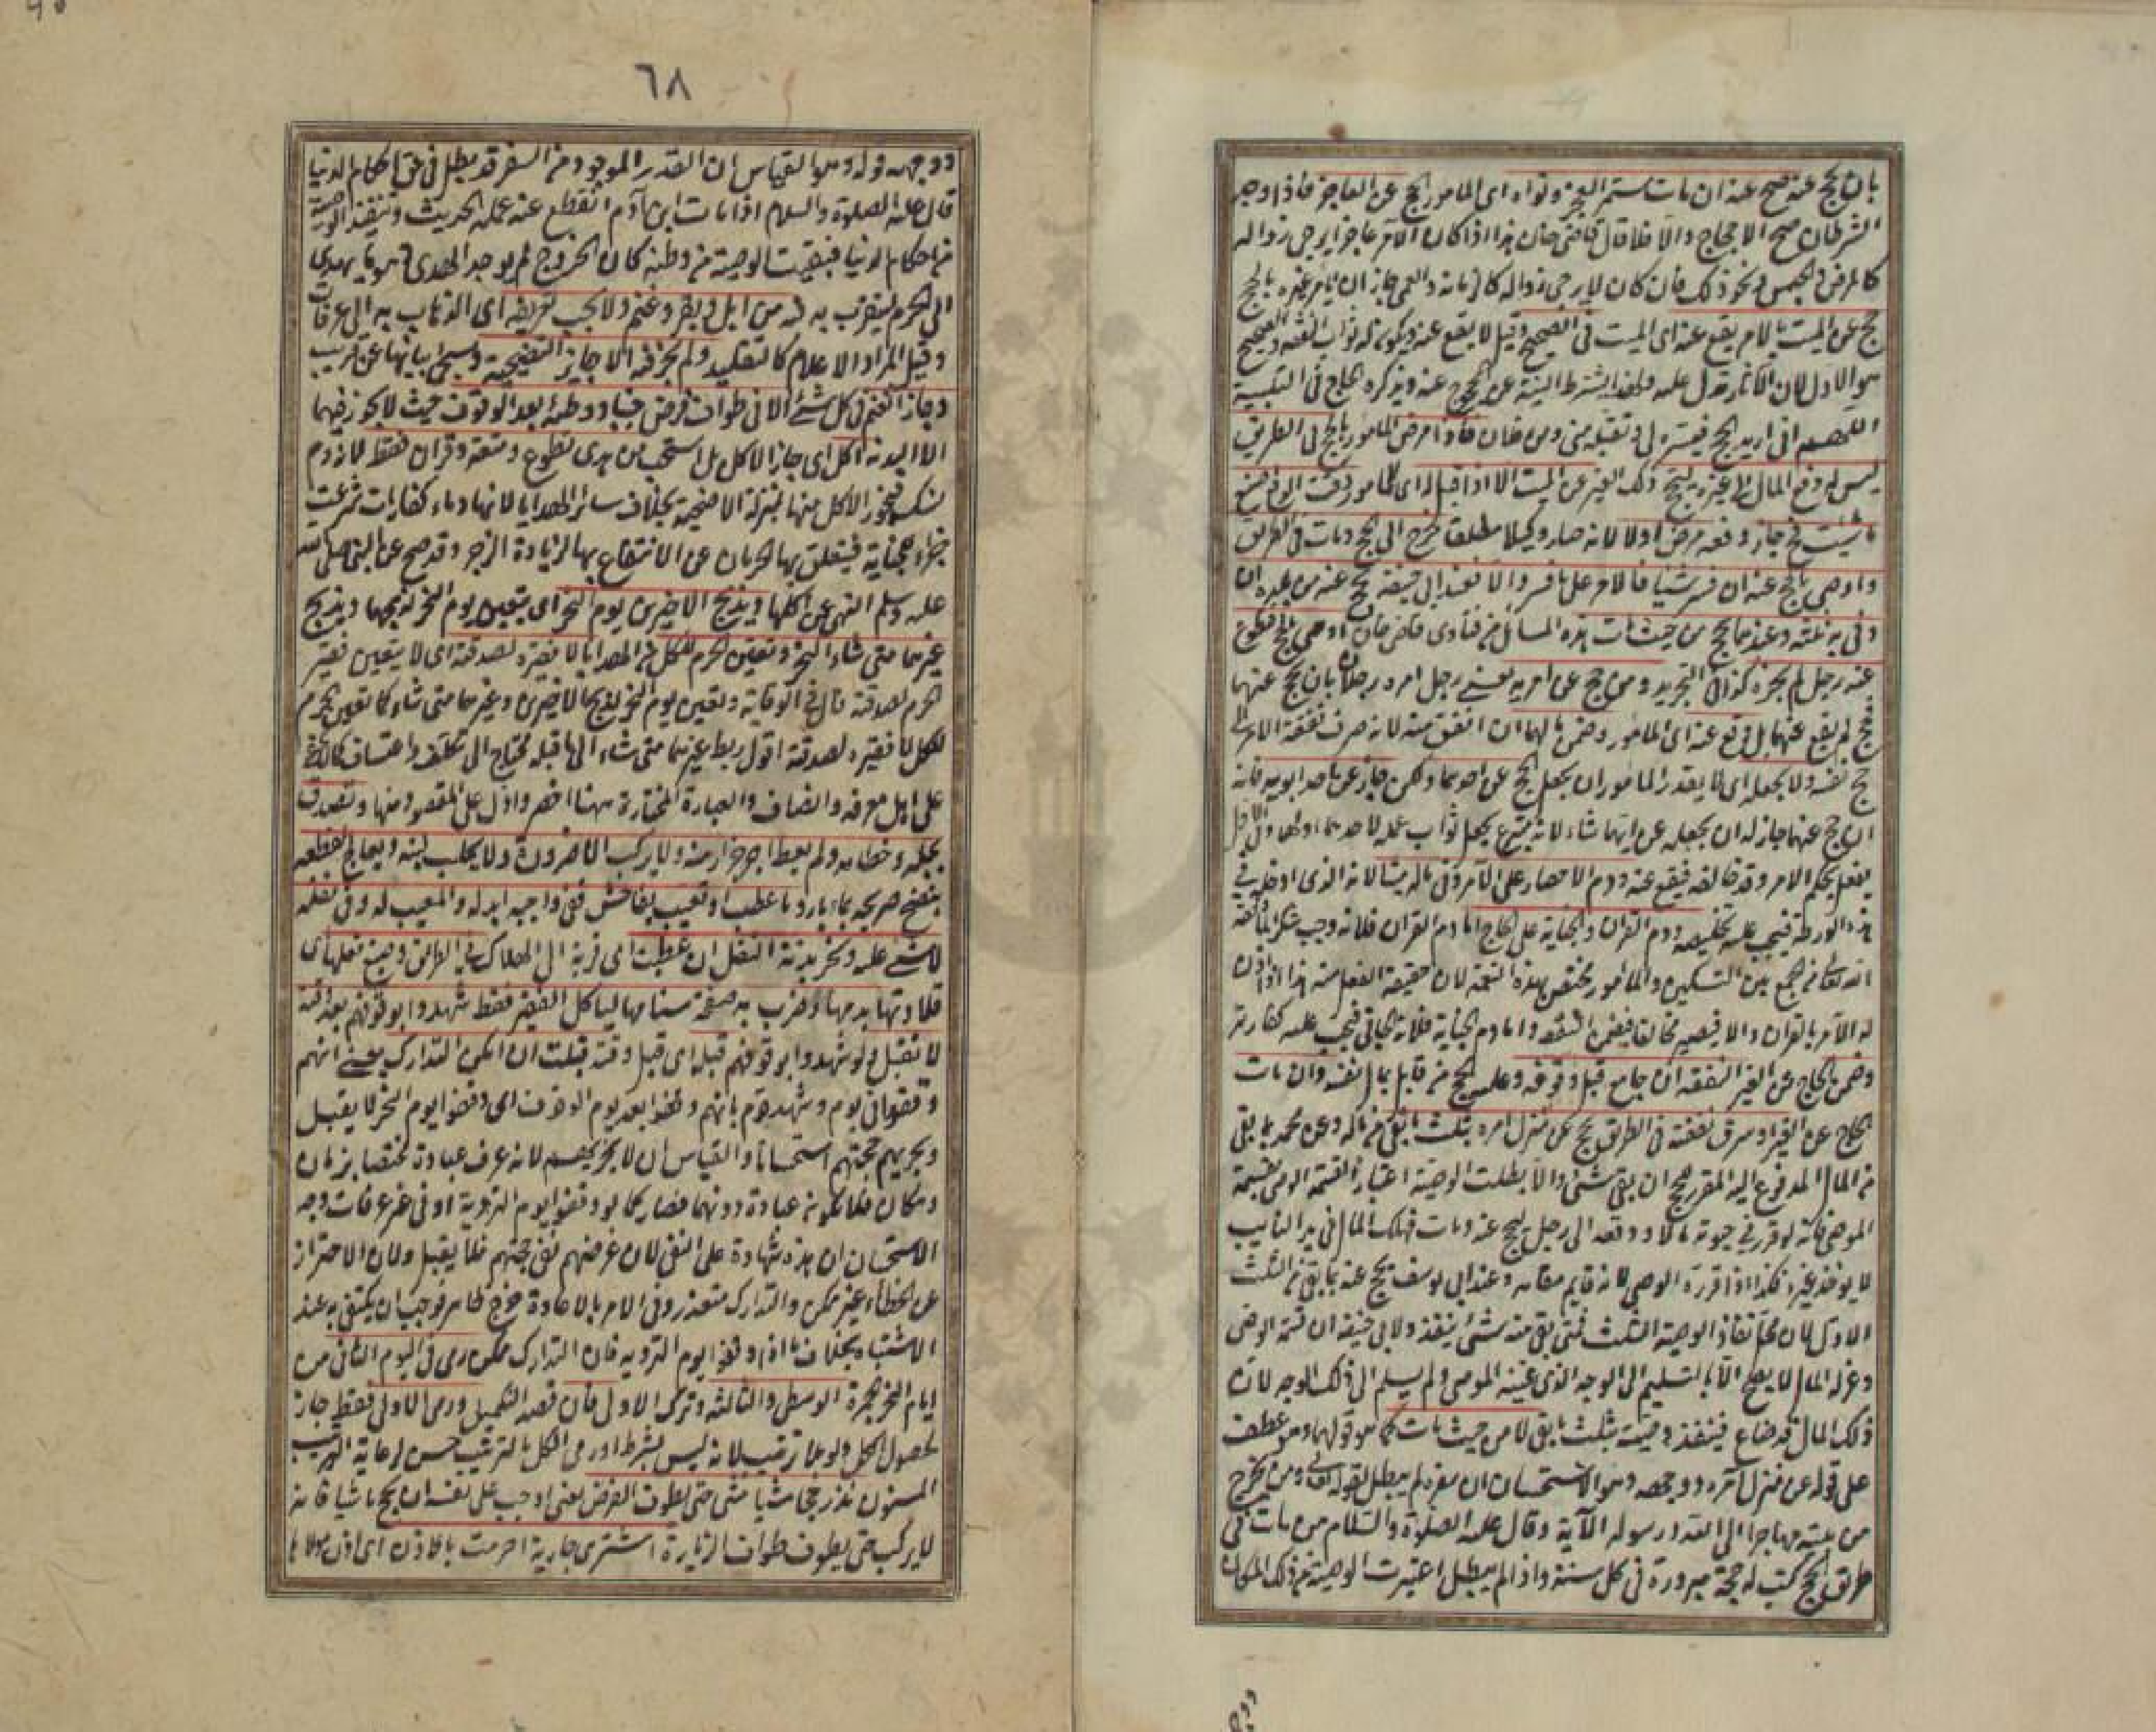 بان يحج عنه صح عنه ان مات مستمر العجز ونواه اى المامور الحج عن العاجز فاذا وجد
الشرطان صح الاحجاج والا فلا قال قاضى خان هذا اذا كان الآمر عاجزا يرجى زواله
كالمرض والحبس ونحو ذلك فان كان لا يرجى زواله كالزمانة والعمى جاز ان يامر غيره بالحج
حج عن الميت بالامر يقع عنه اى الميت فى الصحيح وقيل لا يقع عنه ويكون له ثواب النفقة والصحيح
هو الاول لان الآثار تدل عليه ولهذا يشترط النية عن المحجوج عنه ويذكره الحاج فى التلبية
اللهم انى اريد الحج فيسره لى وتقبله منى ومن فلان فاذا مرض المامور بالحج فى الطريق
ليس له دفع المال الى غيره ليحج ذلك الغير عن الميت الا اذا قيل له اى للمامور وقت الدفع اصنع
ما شئت فح جاز دفعه مرض اولا لانه صار وكيلا مطلقا خرج الى الحج ومات فى الطريق
واوصى بالحج عنه ان فسر شيئا فالامر على ما فسر والا فعند ابى حنيفة يحج عنه من بلده ان
وفى به ثلثه وعندهما يحج من حيث مات هذه المسائل من فتاوى قاضى خان اوصى بحج فتطوع
عنه رجل لم يجزه كذا فى التجريد ومن حج عن امريه يعنى رجل امره رجلان بان يحج عنهما
فحج لم يقع عنهما بل وقع عنه اى المامور وضمن مالهما ان انفق منه لانه صرف نفقة الامر الى
حج نفسه ولا يجعله اى لا يقدر المامور ان يجعل الحج عن احدهما ولكن جاز عن احد ابويه فانه
ان حج عنهما جاز له ان يجعله عن ايهما شاء لانه متبرع بجعل ثواب عمله لاحدهما او لهما وفى الاول
يفعل بحكم الامر وقد خالفه فيقع عنه ودم الاحصار على الآمر وفى ماله ميتا لانه الذى ادخله فى
هذه الورطة فيجب عليه تخليصه ودم القران والجناية على الحاج اما دم القران فلانه وجب شكرا لما وفقه
الله تعالى من الجمع بين النسكين والمامور مختص بهذه النعمة لان حقيقة الفعل منه هذا اذا اذن
له الآمر بالقران والا فيصير مخالفا فيضمن النفقة واما دم الجناية فلانه الجانى فيجب عليه كفارته
وضمن الحاج عن الغير النفقة ان جامع قبل وقوفه وعليه الحج من قابل بمال نفسه وان مات
الحاج عن الغير او سرق نفقته فى الطريق يحج عن منزل امره بثلث ما بقى من ماله وعن محمد بما بقى
من المال المدفوع اليه المقرر للحج ان بقى شئ والا بطلت الوصية اعتبارا لقسمة الوصى بقسمة
الموصى فانه لو قرر فى حيوته مالا ودفعه الى رجل ليحج عنه ومات فهلك المال فى يد النائب
لا يوخذ غيره فكذا اذا قرره الوصى لانه قايم مقامه وعند ابى يوسف يحج عنه بما بقى من الثلث
الاول لان محل نفاذ الوصية الثلث فمتى بقى منه شئ ينفذ ولابى حنيفة ان قسمة الوصى
وعزله المال لا يصح الا بالتسليم الى الوجه الذى عينه الموصى ولم يسلم الى ذلك الوجه لان
ذلك المال قد ضاع فينفذ وصيته بثلث ما بقى لا من حيث مات كما هو قولهما وهو عطف
على قوله عن منزل آمره ووجهه وهو الاستحسان ان سفره لم يبطل لقوله تعالى ومن يخرج
من بيته مهاجرا الى الله ورسوله الآية وقال عليه الصلوة والسلام من مات فى
طريق الحج كتب له حجة مبرورة فى كل سنة واذا لم يبطل اعتبرت الوصية من ذلك المكان
ووجه
٦٨
ووجه قوله وهو القياس ان القدر الموجود من السفر قد بطل فى حق احكام الدنيا
قال عليه الصلوة والسلام اذا مات ابن آدم انقطع عنه عمله الحديث وتنفيذ الوصية
من احكام الدنيا فبقيت الوصية من وطنه كان الخروج لم يوجد الهدى هو ما يهدى
الى الحرم ليتقرب به فيه من ابل وبقر وغنم ولا يجب تعريفه اى الذهاب به الى عرفات
وقيل المراد الاعلام كالتقليد ولم يجز فيه الا جايز التضحية وسيجئ بيانها عن قريب
وجاز الغنم فى كل شئ الا فى طواف فرض جنبا ووطئه بعد الوقوف حيث لا يجوز فيهما
الا البدنة اكل اى جاز الاكل بل استحب من هدى تطوع ومتعة وقران فقط لانه دم
نسك فيجوز الاكل منها بمنزلة الاضحية بخلاف سائر الهدايا لانها دماء كفارات شرعت
جزاء للجناية فيتعلق بها الحرمان عن الانتفاع بها لزيادة الزجر وقد صح عن النبى صلى الله
عليه وسلم النهى عن اكلها ويذبح الاخيرين يوم النحر اى يتعين يوم النحر لذبحهما ويذبح
غيرهما متى شاء الحرم وتعين الحرم للكل من الهدايا لا فقيره لصدقته اى لا يتعين فقير
الحرم لصدقته قال فى الوقاية وتعين يوم النحر لذبح الاخيرين وغيرهما متى شاء كما تعين الحرم
للكل لا فقيره لصدقته اقول ربط غيرهما متى شاء الى ما قبله محتاج الى تكلف واعتساف كما لا يخفى
على اهل معرفة وانصاف والعبارة المختارة ههنا اخصر وادل على المقصود منها وتصدق
بجله وخطامه ولم يعط اجر جزار منه ولا يركب الا ضرورة ولا يحلب لبنه ويعالج لقطعه
بنضح ضرعه بماء بارد وما عطب او تعيب بفاحش ففى واجبه ابدله والمعيب له وفى نفله
لا شئ عليه ونحر بدنة النفل ان عطبت اى قربت الى الهلاك فى الطريق وصبغ نعلها اى
قلادتها بدمها وضرب به صفحة سنامها لياكل الفقير فقط شهدوا بوقوفهم بعد وقته
لا تقبل ولو شهدوا بوقوفهم قبله اى قبل وقته قبلت ان امكن التدارك يعنى انهم
وقفوا فى يوم وشهد قوم بانهم وقفوا بعد يوم الوقوف اى وقفوا يوم النحر لا يقبل
ويجزيهم حجتهم استحسانا والقياس ان لا يجزيهم لانه عرف عبادة مختصا بزمان
ومكان فلا تكون عبادة دونهما فصار كما لو وقفوا يوم التروية او فى غير عرفات وجه
الاستحسان ان هذه شهادة على النفى لان غرضهم نفى حجهم فلا يقبل ولان الاحتراز
عن الخطاء غير ممكن والتدارك متعذر وفى الامر بالاعادة حرج ظاهر فوجب ان يكتفى به عند
الاشتباه بخلاف ما اذا وقفوا يوم التروية فان التدارك ممكن رمى فى اليوم الثانى من
ايام النحر الجمرة الوسطى والثالثة وترك الاولى فان قصد التكميل ورمى الاولى فقط جاز
لحصول الكل ولو بلا ترتيب لانه ليس بشرط او رمى الكل بالترتيب حسن لرعاية الترتيب
المسنون نذر حجا ماشيا مشى حتى يطوف الفرض يعنى اوجب على نفسه ان يحج ماشيا فانه
لا يركب حتى يطوف طواف الزيارة اشترى جارية احرمت بالاذن اى اذن مولاها